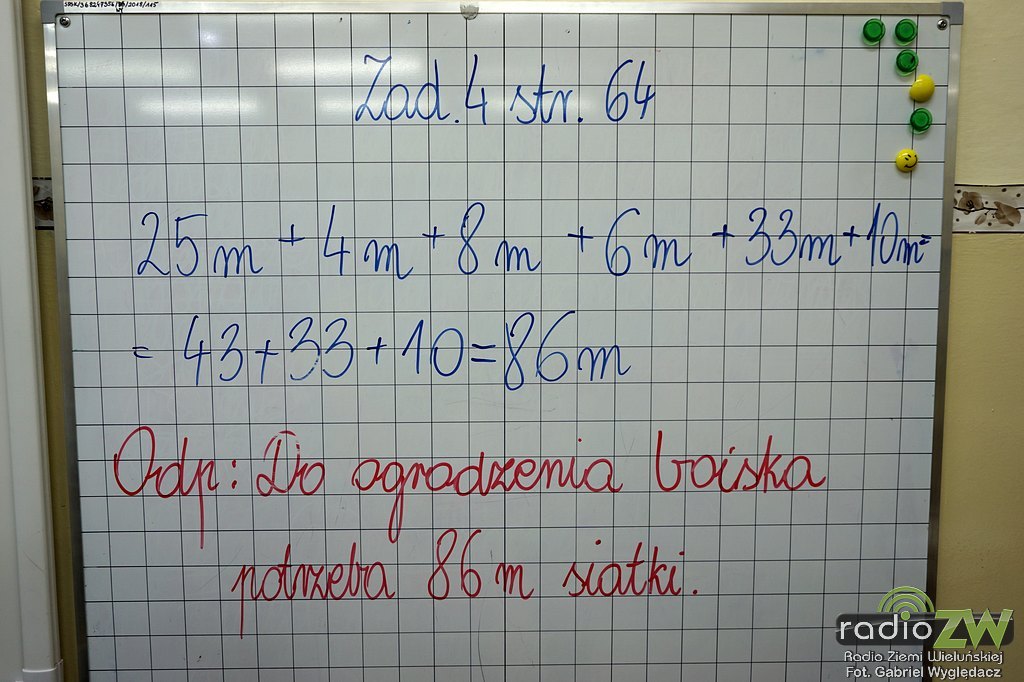 Zad. 4 str. 64
25 m + 4 m + 8 m + 6 m + 33 m + 10 m =
= 43 + 33 + 10 = 86 m
Odp: Do ogrodzenia boiska
potrzeba 86 m siatki.
radio ZW
Radio Ziemi Wieluńskiej
Fot. Gabriel Wyględacz